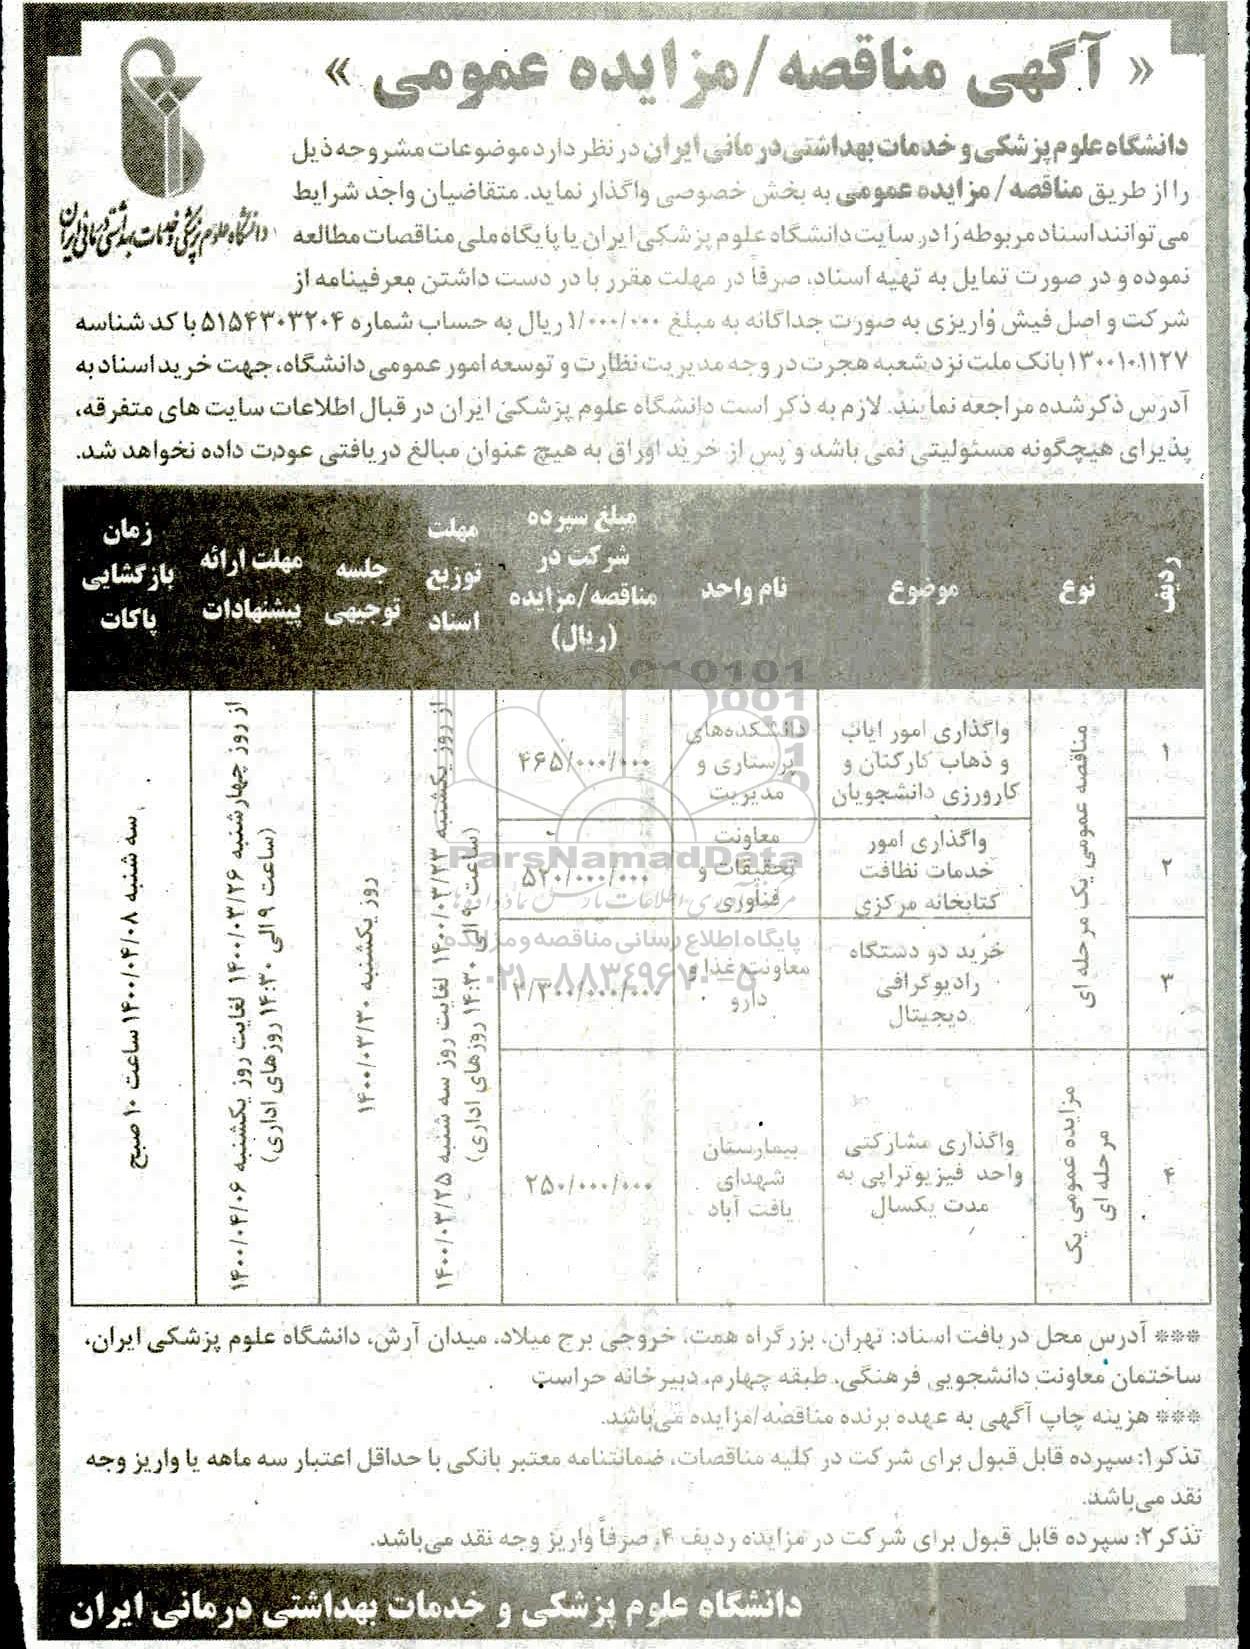 « آگهی مناقصه/مزایده عمومی »
دانشگاه علوم پزشکی و خدمات بهداشتی درمانی ایران
دانشگاه علوم پزشکی و خدمات بهداشتی درمانی ایران در نظر دارد موضوعات مشروحه ذیل
را از طریق مناقصه / مزایده عمومی به بخش خصوصی واگذار نماید. متقاضیان واجد شرایط
می توانند اسناد مربوطه را در سایت دانشگاه علوم پزشکی ایران یا پایگاه ملی مناقصات مطالعه
نموده و در صورت تمایل به تهیه اسناد، صرفاً در مهلت مقرر با در دست داشتن معرفینامه از
شرکت و اصل فیش واریزی به صورت جداگانه به مبلغ ۱/۰۰۰/۰۰۰ ریال به حساب شماره ۵۱۵۴۳۰۳۲۰۴ با کد شناسه
۱۳۰۰۱۰۱۱۲۷ بانک ملت نزد شعبه هجرت در وجه مدیریت نظارت و توسعه امور عمومی دانشگاه، جهت خرید اسناد به
آدرس ذکر شده مراجعه نمایند. لازم به ذکر است دانشگاه علوم پزشکی ایران در قبال اطلاعات سایت های متفرقه،
پذیرای هیچگونه مسئولیتی نمی باشد و پس از خرید اوراق به هیچ عنوان مبالغ دریافتی عودت داده نخواهد شد.
ردیف
نوع
موضوع
نام واحد
مبلغ سپرده
شرکت در
مناقصه/مزایده
(ریال)
مهلت
توزیع
اسناد
جلسه
توجیهی
مهلت ارائه
پیشنهادات
زمان
بازگشایی
پاکات
۱
مناقصه عمومی یک مرحله ای
واگذاری امور ایاب
و ذهاب کارکنان و
کارورزی دانشجویان
دانشکده‌های
پرستاری و
مدیریت
۴۶۵/۰۰۰/۰۰۰
از روز یکشنبه ۱۴۰۰/۰۳/۲۳ لغایت روز سه شنبه ۱۴۰۰/۰۳/۲۵
(ساعت ۹ الی ۱۴:۳۰ روزهای اداری)
روز یکشنبه ۱۴۰۰/۰۳/۳۰
از روز چهارشنبه ۱۴۰۰/۰۳/۲۶ لغایت روز یکشنبه ۱۴۰۰/۰۴/۰۶
(ساعت ۹ الی ۱۴:۳۰ روزهای اداری)
سه شنبه ۱۴۰۰/۰۴/۰۸ ساعت ۱۰ صبح
۲
واگذاری امور
خدمات نظافت
کتابخانه مرکزی
معاونت
تحقیقات و
فناوری
۵۲۰/۰۰۰/۰۰۰
۳
خرید دو دستگاه
رادیوگرافی
دیجیتال
معاونت غذا و
دارو
۲/۳۰۰/۰۰۰/۰۰۰
۴
مزایده عمومی یک
مرحله ای
واگذاری مشارکتی
واحد فیزیوتراپی به
مدت یکسال
بیمارستان
شهدای
یافت آباد
۲۵۰/۰۰۰/۰۰۰
ParsNamadData
پایگاه اطلاع رسانی مناقصه و مزایده
۰۲۱-۸۸۳۴۹۶۷۰-۵
*** آدرس محل دریافت اسناد: تهران، بزرگراه همت، خروجی برج میلاد، میدان آرش، دانشگاه علوم پزشکی ایران،
ساختمان معاونت دانشجویی فرهنگی، طبقه چهارم، دبیرخانه حراست
*** هزینه چاپ آگهی به عهده برنده مناقصه/مزایده می‌باشد.
تذکر۱: سپرده قابل قبول برای شرکت در کلیه مناقصات، ضمانتنامه معتبر بانکی با حداقل اعتبار سه ماهه یا واریز وجه
نقد می‌باشد.
تذکر۲: سپرده قابل قبول برای شرکت در مزایده ردیف ۴، صرفاً واریز وجه نقد می‌باشد.
دانشگاه علوم پزشکی و خدمات بهداشتی درمانی ایران